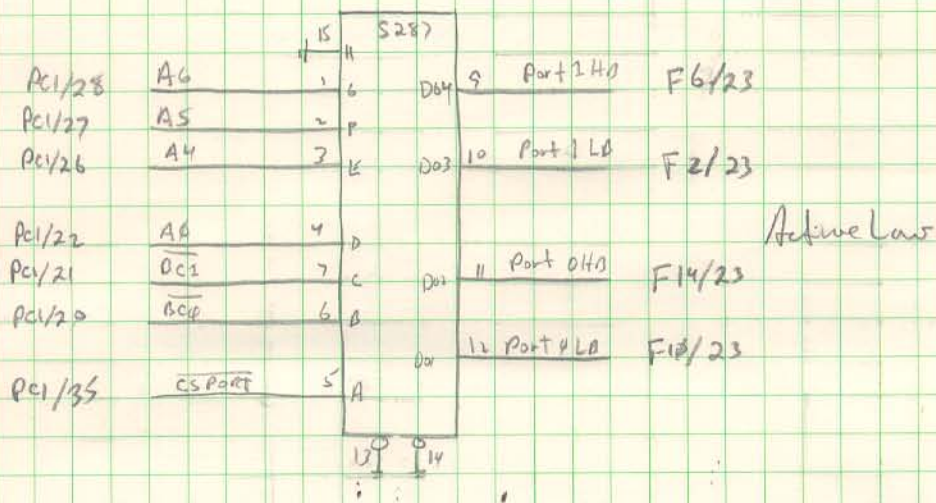 15 S287
H
PC1/28 A6 1 G D04 9 Port 1 HB F6/23
PC1/27 A5 2 F
PC1/26 A4 3 E D03 10 Port 1 LB F2/23
PC1/22 A0 4 D Active Low
PC1/21 BC1 7 C D02 11 Port 0HB F14/23
PC1/20 BC0 6 B
D01 12 Port 0 LB F10/23
PC1/35 CSPORT 5 A
13 14